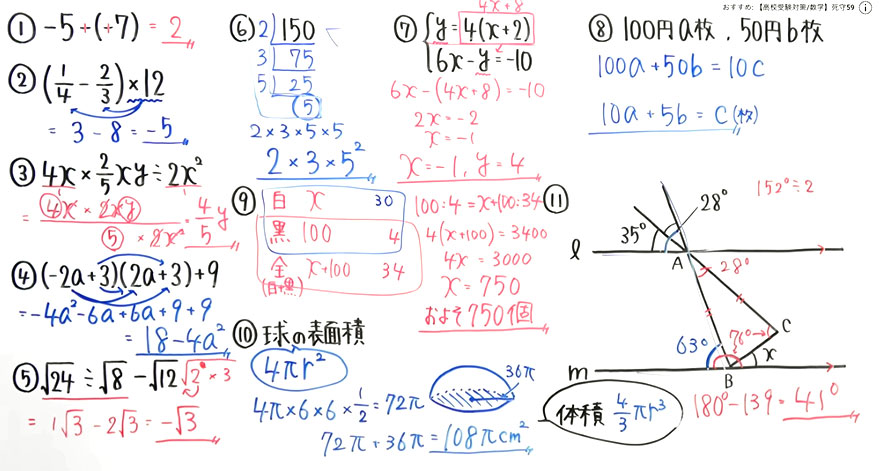 おすすめ:【高校受験対策/数学】死守59
① -5+(+7) = 2
② (1/4 - 2/3)×12
= 3-8 = -5
③ 4x × 2/5 xy ÷ 2x²
= 4x × 2xy / 5 × 2x² = 4/5 y
④ (-2a+3)(2a+3)+9
= -4a²-6a+6a+9+9
= 18-4a²
⑤ √24 ÷ √8 - √12 √2²×3
= 1√3 - 2√3 = -√3
⑥ 2 150
3 75
5 25
5
2×3×5×5
2×3×5²
⑦ 4x+8
y = 4(x+2)
6x-y = -10
6x-(4x+8) = -10
2x = -2
x = -1
x = -1, y = 4
⑧ 100円a枚, 50円b枚
100a+50b = 10c
10a+5b = c (枚)
⑨ 白 x 30
黒 100 4
全 x+100 34
(白+黒)
100:4 = x+100:34
4(x+100) = 3400
4x = 3000
x = 750
およそ750個
⑩ 球の表面積
4πr²
4π×6×6×1/2 = 72π
36π
72π+36π = 108πcm²
体積 4/3 πr³
⑪ 152°÷2
28°
35°
ℓ
A
28°
C
76°
63°
x
m
B
180°-139 = 41°